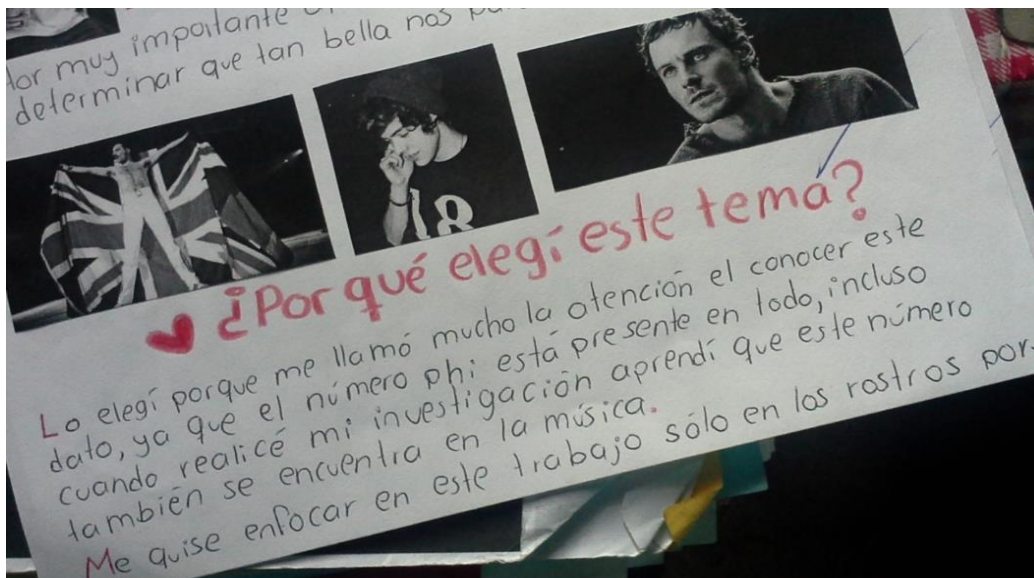 tor muy importante
determinar que tan bella nos
18
¿Por qué elegí este tema?
Lo elegí porque me llamó mucho la atención el conocer este
dato, ya que el número phi está presente en todo, incluso
cuando realicé mi investigación aprendí que este número
también se encuentra en la música.
Me quise enfocar en este trabajo sólo en los rostros por